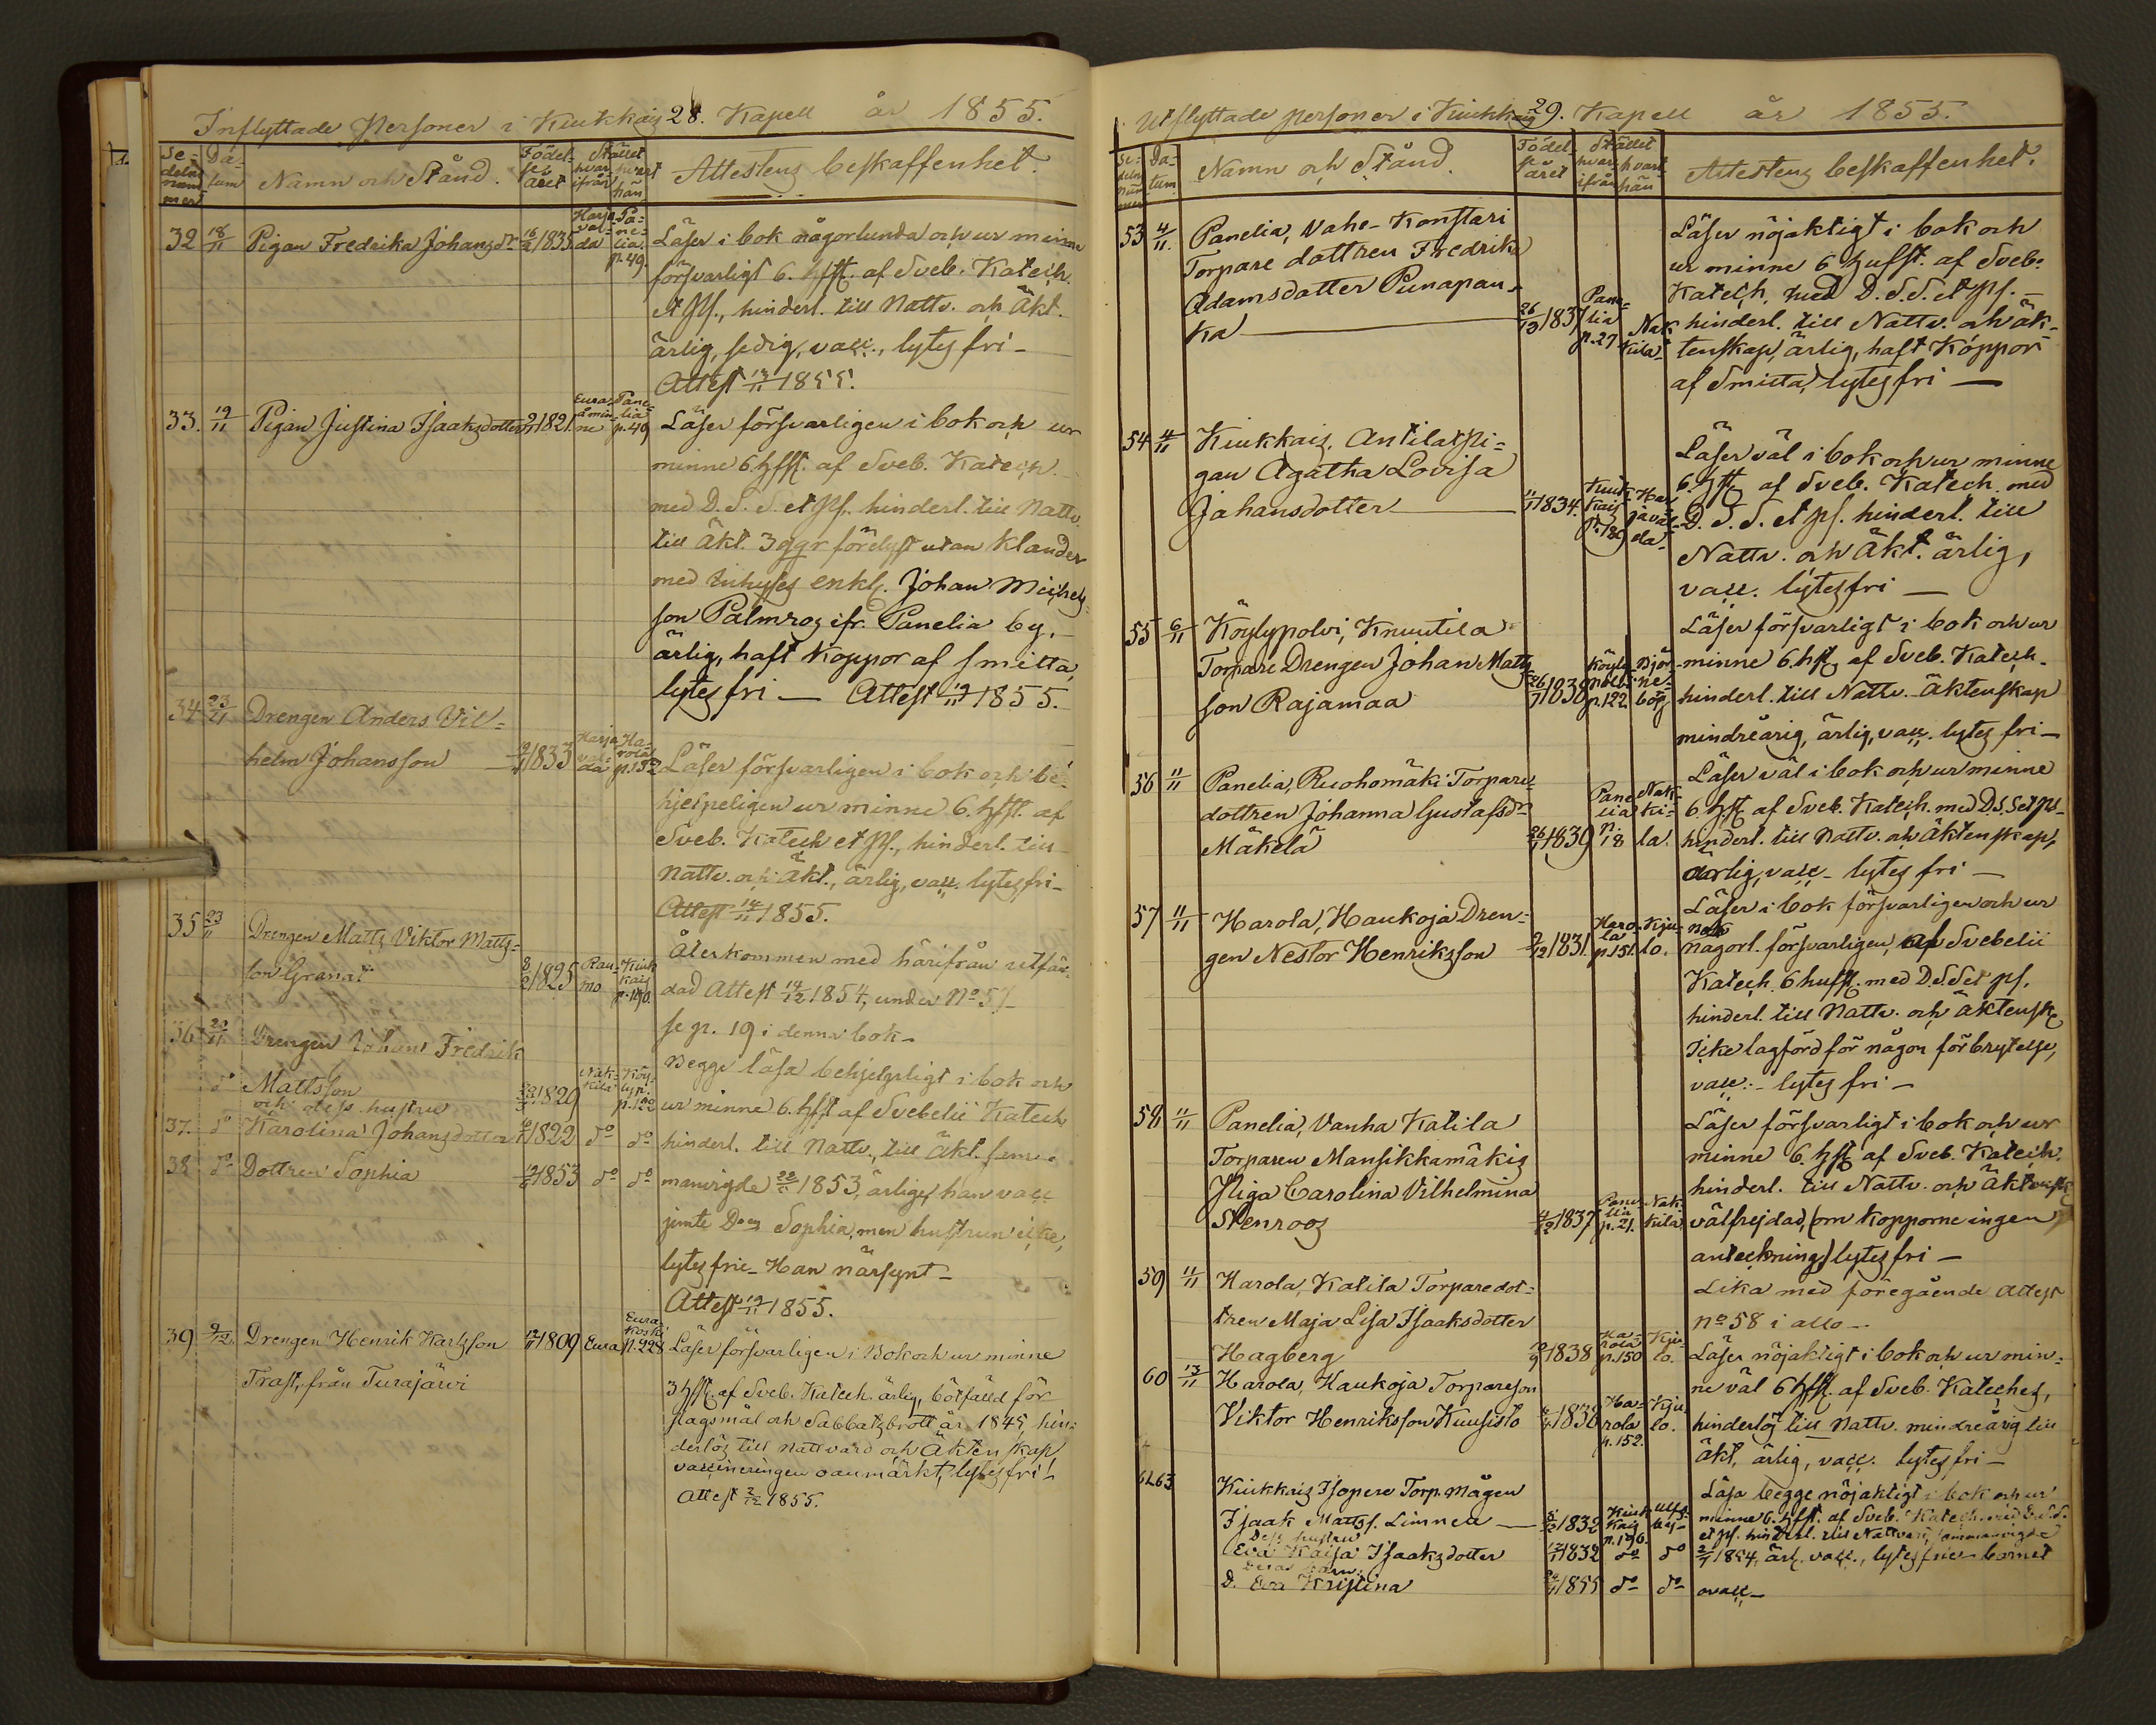 Inflyttade Personer i Kiukkais 28. Kapell år 1855.
Se-
delns
num
mer
Da-
tum
Namn och Stånd.
Födel-
se
året
Stället
hvar
ifrån
hvart
hän
Attestens beskaffenhet.
32 18/11 Pigan Fredrika Johansdr 16/2 1835 Harja-
val-
da Pa-
ne-
lia.
p.49.
Läser i bok någorlunda och ur minne
försvarligt 6. hfst. af Sveb. Katech.
et ps., hinderl. till Nattv. och Äkt.
ärlig, sedig, vacc., lytes fri –
Attest 13/11 1855.
33. 19/11 Pigan Justina Isaaksdotter 1821. Eura-
åmin-
ne Pane-
lia
p.49
Läser försvarligen i bok och ur
minne 6 hfst. af Sveb. Katech.
med D. S. S. et ps. hinderl. till Nattv.
till Äkt. 3 ggr förelyst utan klander
med inhyses enkl. Johan Michels-
son Palmros ifr. Panelia by,
ärlig, haft koppor af smitta,
lytes fri – Attest 19/11 1855.
34 23/11 Drengen Anders Vil-
helm Johansson 1833 Harja
val-
da Ha-
rola
p.152
Läser försvarligen i bok och be-
hjelpeligen ur minne 6. hfst. af
Sveb. Katech et ps., hinderl. till
Nattv. och Äkt., ärlig, vacc. lytes fri –
Attest 14/11 1855.
35 23/11 Drengen Matts Viktor Matts-
son Granat 8/2 1825 Rau-
mo Kiuk
kais
p.190.
Återkommen med härifrån utfär-
dad Attest 19/12 1854, under No 57
se p. 19 i denna bok –
36 Drengen Johans Fredrik
do Mattsson 1829 Nak-
kila Köy-
lyp.
p.122
och dess hustru
37. do Karolina Johansdotter 1822 do do
38 do Dottren Sophia 1853 do do
Begge läsa behjelpligt i bok och
ur minne 6. hfst af Svebelii Katech
hinderl. till Nattv., till Äkt. sam-
manvigde 1853, ärlige, han vacc
jemte Sophia, men hustrun icke,
lytes frie – Han närsynt –
Attest 19/11 1855.
39 9/12. Drengen Henrik Karlsson
Trast, från Turajärvi 1809 Eura Eura
Koski
p.228
Läser försvarligen i Bok och ur minne
3 hfst. af Sveb. Katech. ärlig, bötfälld för
slagsmål och Sabbatsbrott år 1845, hin-
derlös till nattvard och Äktenskap
vaccineringen oanmärkt, lytes fri –
Attest 2/12 1855.
Utflyttade personer i Kiukkais 29. Kapell år 1855.
Se-
delns
num
mer
Da-
tum
Namn och Stånd.
Födel-
se
året
Stället
hvar
ifrån
hvart
hän
Attestens beskaffenhet.
53 4/11. Panelia, Vahe-Konstari
Torpare dottren Fredrika
Adamsdotter Punapau-
ka 1837 Pane-
lia
p.27 Nak
kila
Läser nöjaktigt i bok och
ur minne 6 hufst. af Sveb.
Katech, med D. S. S. et ps. –
hinderl. till Nattv. och äk-
tenskap, ärlig, haft koppor
af smitta, lytes fri –
54 4/11 Kiukkais, Antilas pi-
gan Agatha Lovisa
Johansdotter 1834. Kiuk
kais
p.189 Har
javal-
da
Läser väl i bok och ur minne
6. hfst af Sveb. Katech. med
D. S. S. et ps. hinderl. till
Nattv. och Äkt. ärlig,
vacc. lytes fri –
55 6/11 Köylypolvi, Knuutila
Torpare Drengen Johan Matts
son Rajamaa 26/7 1838 Köyly
polvi
p.122 Björ-
ne-
bög
Läser försvarligt i bok och ur
minne 6. hfst af Sveb. Katech.
hinderl. till Nattv. Äktenskap
mindreårig, ärlig, vacc. lytes fri –
56 11/11 Panelia, Ruohomäki Torpare-
dottren Johanna Gustafsdr
Mäkelä 26/1 1839 Pane
lia
p.
18 Nak-
ki-
la.
Läser väl i bok och ur minne
6 hfst af Sveb. Katech. med D.S.S et ps –
hinderl. till Nattv. och Äktenskap,
ärlig, vacc – lytes fri –
57 11/11 Harola, Haukoja Dren-
gen Nestor Henriksson 2/12 1831. Haro-
la
p.151. Kju-
lo.
Läser i bok försvarligen och ur
någorl. försvarligen, af Svebelii
Katech. 6 hufst. med D.S.S et ps.
hinderl. till Nattv. och äktensk
Icke lagförd för någon förbrytelse,
vacc. – lytes fri –
58 11/11 Panelia, Vanha Katila
Torparen Mansikkamäkis
Piga Carolina Vilhelmina
Stenroos 4/12 1837 Pane-
lia
p.21. Nak-
kila
Läser försvarligt i bok och ur
minne 6. hfst af Sveb. Katech.
hinderl. till Nattv. och Äktensk
välfrejdad, (om kopporne ingen
anteckning) lytes fri –
59 11/11 Harola, Katila Torparedot-
tren Maja Lisa Isaaksdotter
Hagberg 1838 Ha-
rola
p.150 Kju-
lo.
Lika med föregående attest
No 58 i allo –
60 13/11 Harola, Haukoja Torpareson
Viktor Henriksson Kuusisto 1838 Ha-
rola
p.152. Kju
lo.
Läser nöjaktigt i bok och ur min-
ne väl 6 hfst. af Sveb. Kateches,
hinderlös till Nattv. mindreårig till
äkt, ärlig, vacc. lytes fri –
61.63 Kiukkais Isopere Torp. mågen
Isaak Mattss. Linnea 1832 Kiuk
kais
p.196. Ulfs-
by-
Dess hustru
Eva Kaisa Isaaksdotter 1832 do do
Deras barn:
D. Eva Kristina 1855 do do
Läsa begge nöjaktigt i bok och ur
minne 6. hfst. af Sveb. Katech.
et ps. hinderl. till Nattvard, sammanvigde
1854, ärl. vacc., lytes frie – barnet
ovacc –